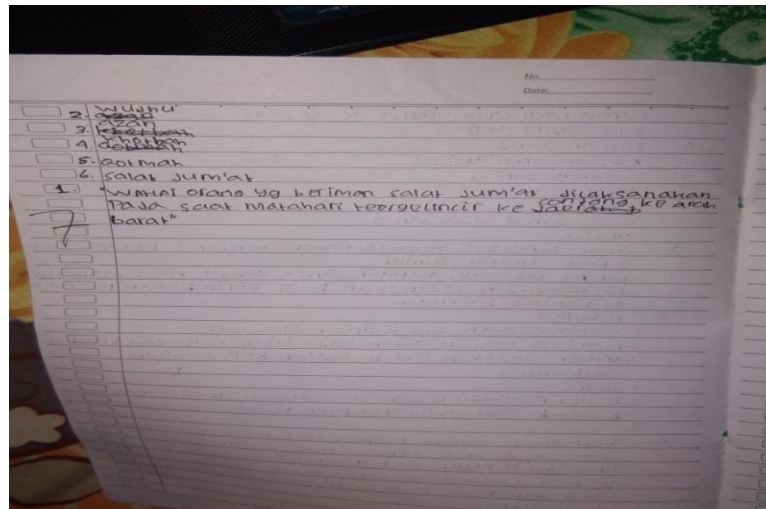 No.
Date:
wudhu'
2. azan
azan
3. khotbah
khotbah
4.
5. qotmah
6. salat Jum'at
1. "wahai orang yg beriman salat Jum'at dilaksanakan
Pada saat Matahari teergelincir ke condong ke arah
barat"
7